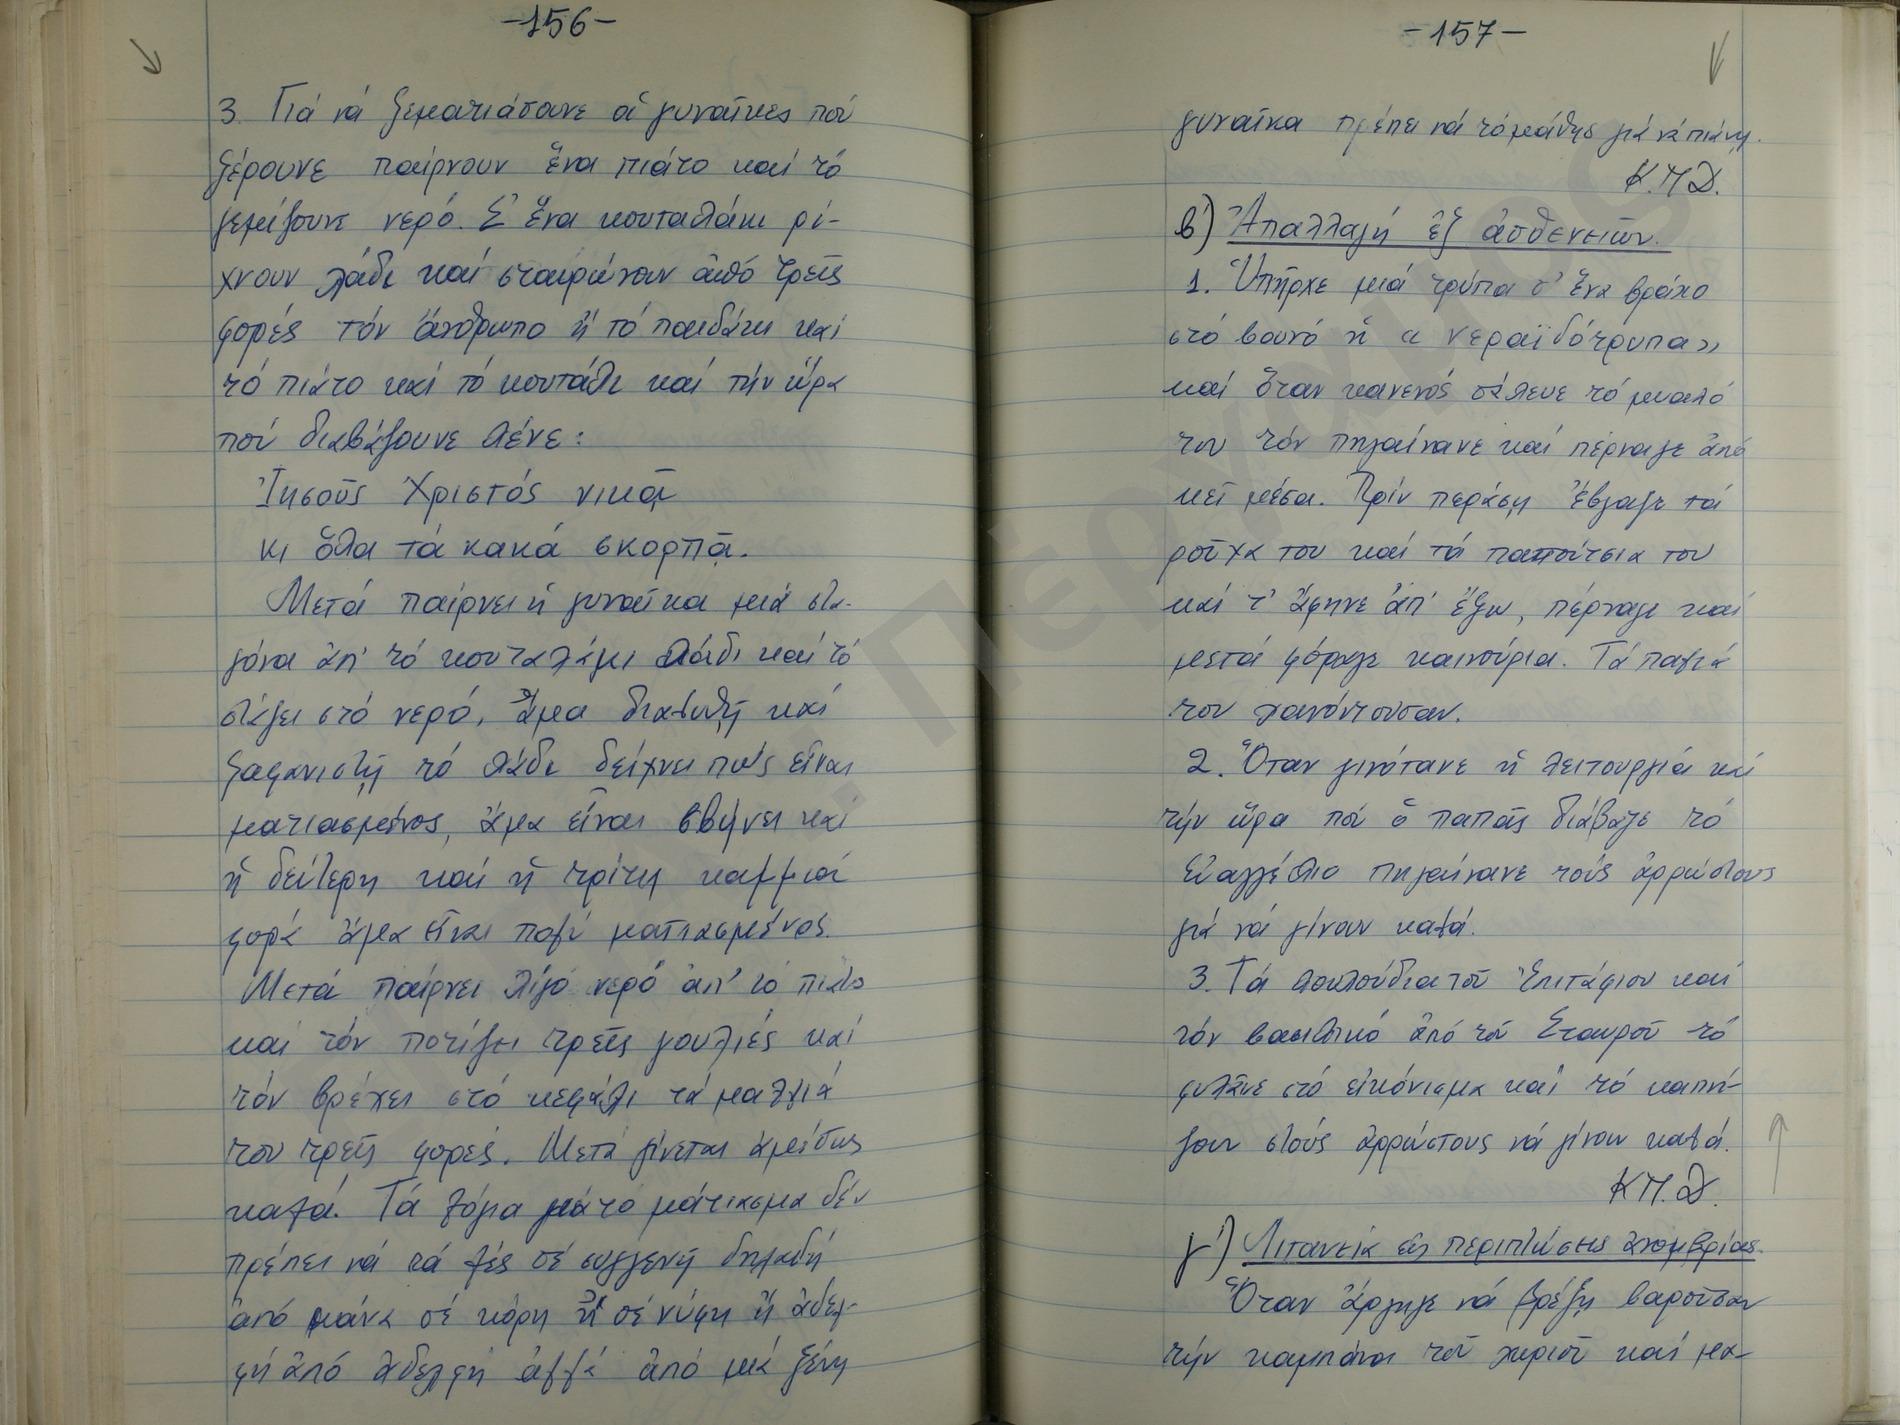 -156-
3. Γιά νά ξεματιάσουνε οἱ γυναῖκες πού
ξέρουνε παίρνουν ἕνα πιάτο καί τό
γεμίζουνε νερό. Σ' ἕνα κουταλάκι ρί-
χνουν λάδι καί σταυρώνουν ἀπό τρεῖς
φορές τόν ἄνθρωπο ἤ τό παιδάκι καί
τό πιάτο καί τό κουτάλι καί τήν ὥρα
πού διαβάζουνε λένε:
Ἰησοῦς Χριστός νικᾷ
κι ὅλα τά κακά σκορπᾷ.
Μετά παίρνει ἡ γυναῖκα μιά στα-
γόνα ἀπ' τό κουταλάκι λάδι καί τό
στάζει στό νερό, ἅμα διαλυθῇ καί
ξαφανιστῇ τό λάδι δείχνει πώς εἶναι
ματιασμένος, ἅμα εἶναι σβήνει καί
ἡ δεύτερη καί ἡ τρίτη καμμιά
φορά ἅμα εἶναι πολύ ματιασμένος.
Μετά παίρνει λίγο νερό ἀπ' τό πιάτο
καί τόν ποτίζει τρεῖς γουλιές καί
τόν βρέχει στό κεφάλι τά μαλλιά
του τρεῖς φορές. Μετά γίνεται ἀμέσως
καλά. Τά λόγια γιά τό μάτιασμα δέν
πρέπει νά τά λές σέ συγγενῆ δηλαδή
ἀπό μάνα σέ κόρη ἤ σέ νύφη ἤ ἀδελ-
φή ἀπό ἀδελφή ἀλλά ἀπό μιά ξένη
-157-
γυναῖκα πρέπει νά τό μάθης γιά νά πιάνῃ.
Κ.Π.Δ.
β') Ἀπαλλαγή ἐξ ἀσθενειῶν.
1. Ὑπῆρχε μιά τρύπα σ' ἕνα βράχο
στό βουνό ἡ « νεραϊδότρυπα»
καί ὅταν κανενός σάλευε τό μυαλό
του τόν πηγαίνανε καί πέρναγε ἀπό
κεῖ μέσα. Πρίν περάσῃ ἔβγαζε τά
ροῦχα του καί τά παπούτσια του
καί τ' ἄφηνε ἀπ' ἔξω, πέρναγε καί
μετά φόραγε καινούρια. Τά παλιά
του χανόντουσαν.
2. Ὅταν γινότανε ἡ λειτουργιά καί
τήν ὥρα πού ὁ παπᾶς διάβαζε τό
Εὐαγγέλιο πηγαίνανε τούς ἀρρώστους
γιά νά γίνουν καλά.
3. Τά λουλούδια τοῦ Ἐπιτάφιου καί
τόν βασιλικό ἀπό τοῦ Σταυροῦ τό
φυλᾶνε στό εἰκόνισμα καί τό καπνί-
ζουν στούς ἀρρώστους νά γίνουν καλά.
Κ.Π.Δ.
γ') Λιτανεία εἰς περιπτώσεις ἀνομβρίας.
Ὅταν ἄργαγε νά βρέξῃ βαρούσαν
τήν καμπάνα τοῦ χωριοῦ καί μα-